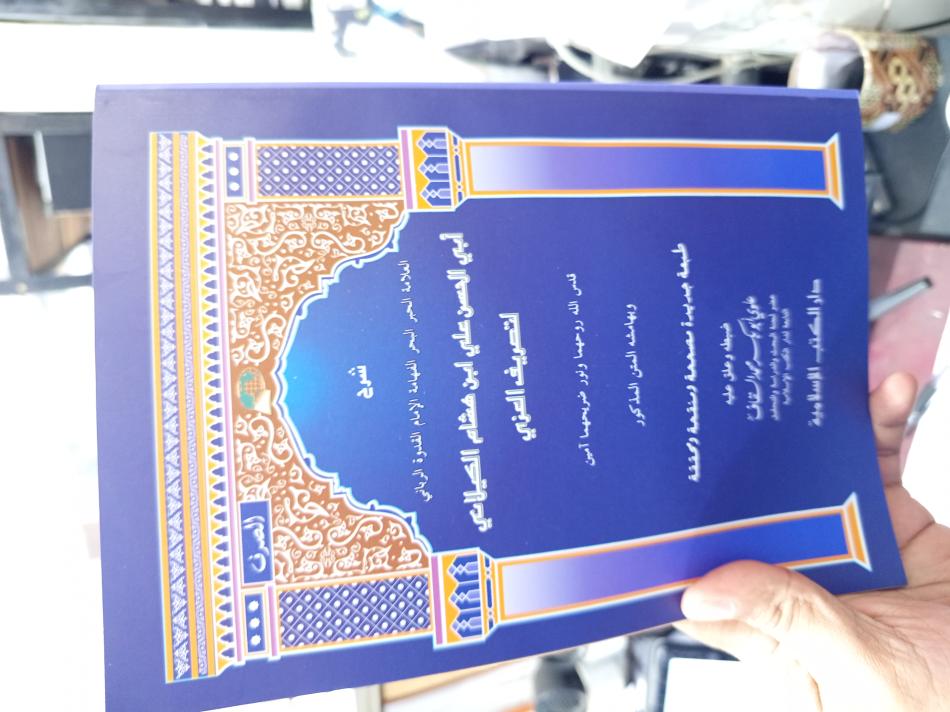 الصرف
شرح
العلامة الحبر البحر الفهامة الإمام القدوة الرباني
أبي الحسن علي ابن هشام الكيلاني
لتصريف العزي
قدس الله روحهما ونور ضريحهما آمين
وبهامشه المتن المذكور
طبعة جديدة مصححة ومنقحة ومحققة
ضبطه وعلق عليه
علوي أبو بكر محمد السقاف
دار الكتب الإسلامية